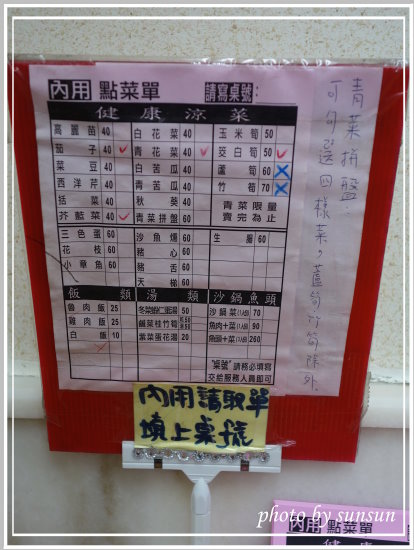 內用 點菜單 請寫桌號:
健康涼菜
高麗菌 40 白花菜 40 玉米筍 50
茄子 40 青花菜 40 茭白筍 50
菜豆 40 白苦瓜 40 蘆筍 60
西洋芹 40 青苦瓜 40 竹筍 70
括菜 40 秋葵 40 青菜限量
芥藍菜 40 青菜拼盤 60 賣完為止
三色蛋 60 沙魚燻 60 生腸 60
花枝 60 豬心 60
小章魚 60 豬舌 60
天梯 60
飯類 湯類 沙鍋魚頭
魯肉飯 25 50 沙鍋菜(1/份) 70
雞肉飯 25 鹹菜桂竹筍 魚肉+菜(1/份) 90
白飯 10 紫菜蛋花湯 20 魚頭+菜(1/份) 260
"桌號"請務必填寫
交給服務人員即可
青菜拼盤:
可勾選四樣菜,蘆筍竹筍除外.
內用請取單
填上桌號
photo by sunsun
內用 點菜單